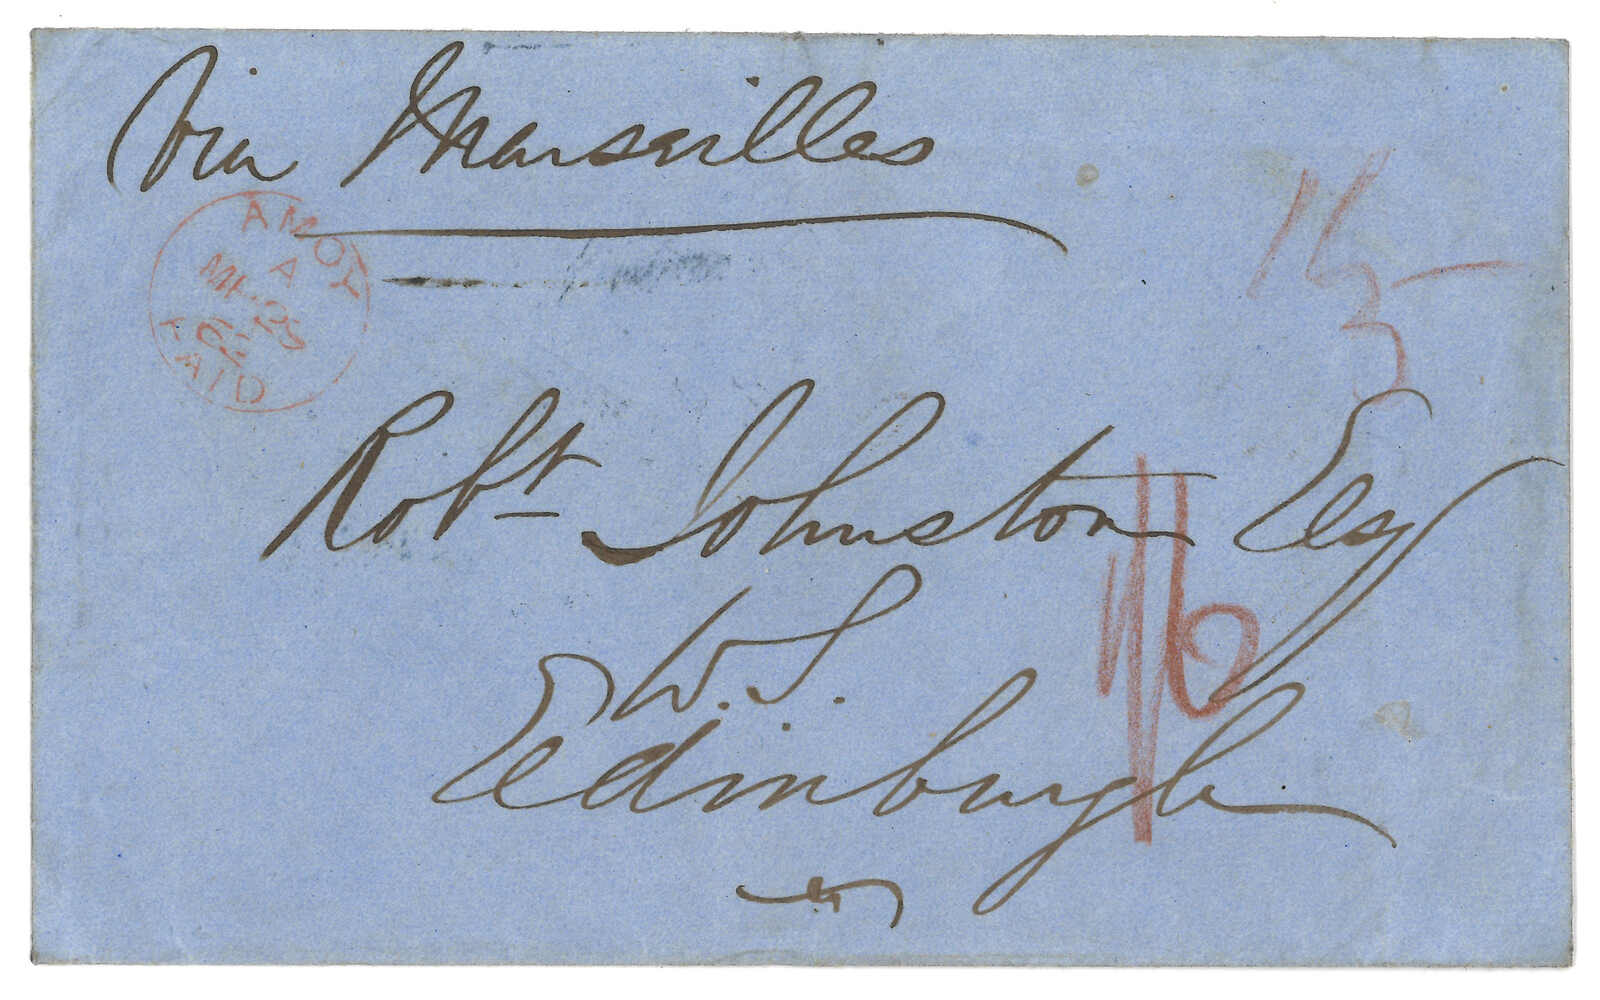 Via Marseilles
AMOY
A
MR 29
62
PAID
Robt Johnston Esq
W.S.
Edinburgh